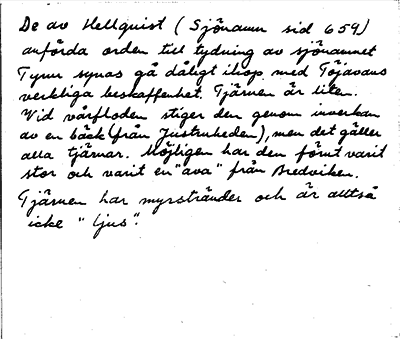 De av Hellquist (Sjönamn sid 659)
anförda orden till tydning av sjönamnet
Tynn synas gå dåligt ihop med Töjavans
verkliga beskaffenhet. Tjärnen är liten.
Vid vårfloden stiger den genom inverkan
av en bäck (från Justruheden), men det gäller
alla tjärnar. Möjligen har den förut varit
stor och varit en "ava" från Bredviken.
Tjärnen har myrstränder och är alltså
icke "ljus".